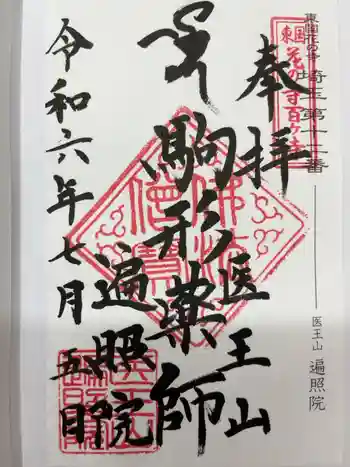 東国花の寺 埼玉第十二番 ── 医王山 遍照院
東国
花の寺百ヶ寺
奉拝
医王山
駒形薬師
遍照院
令和六年七月五日